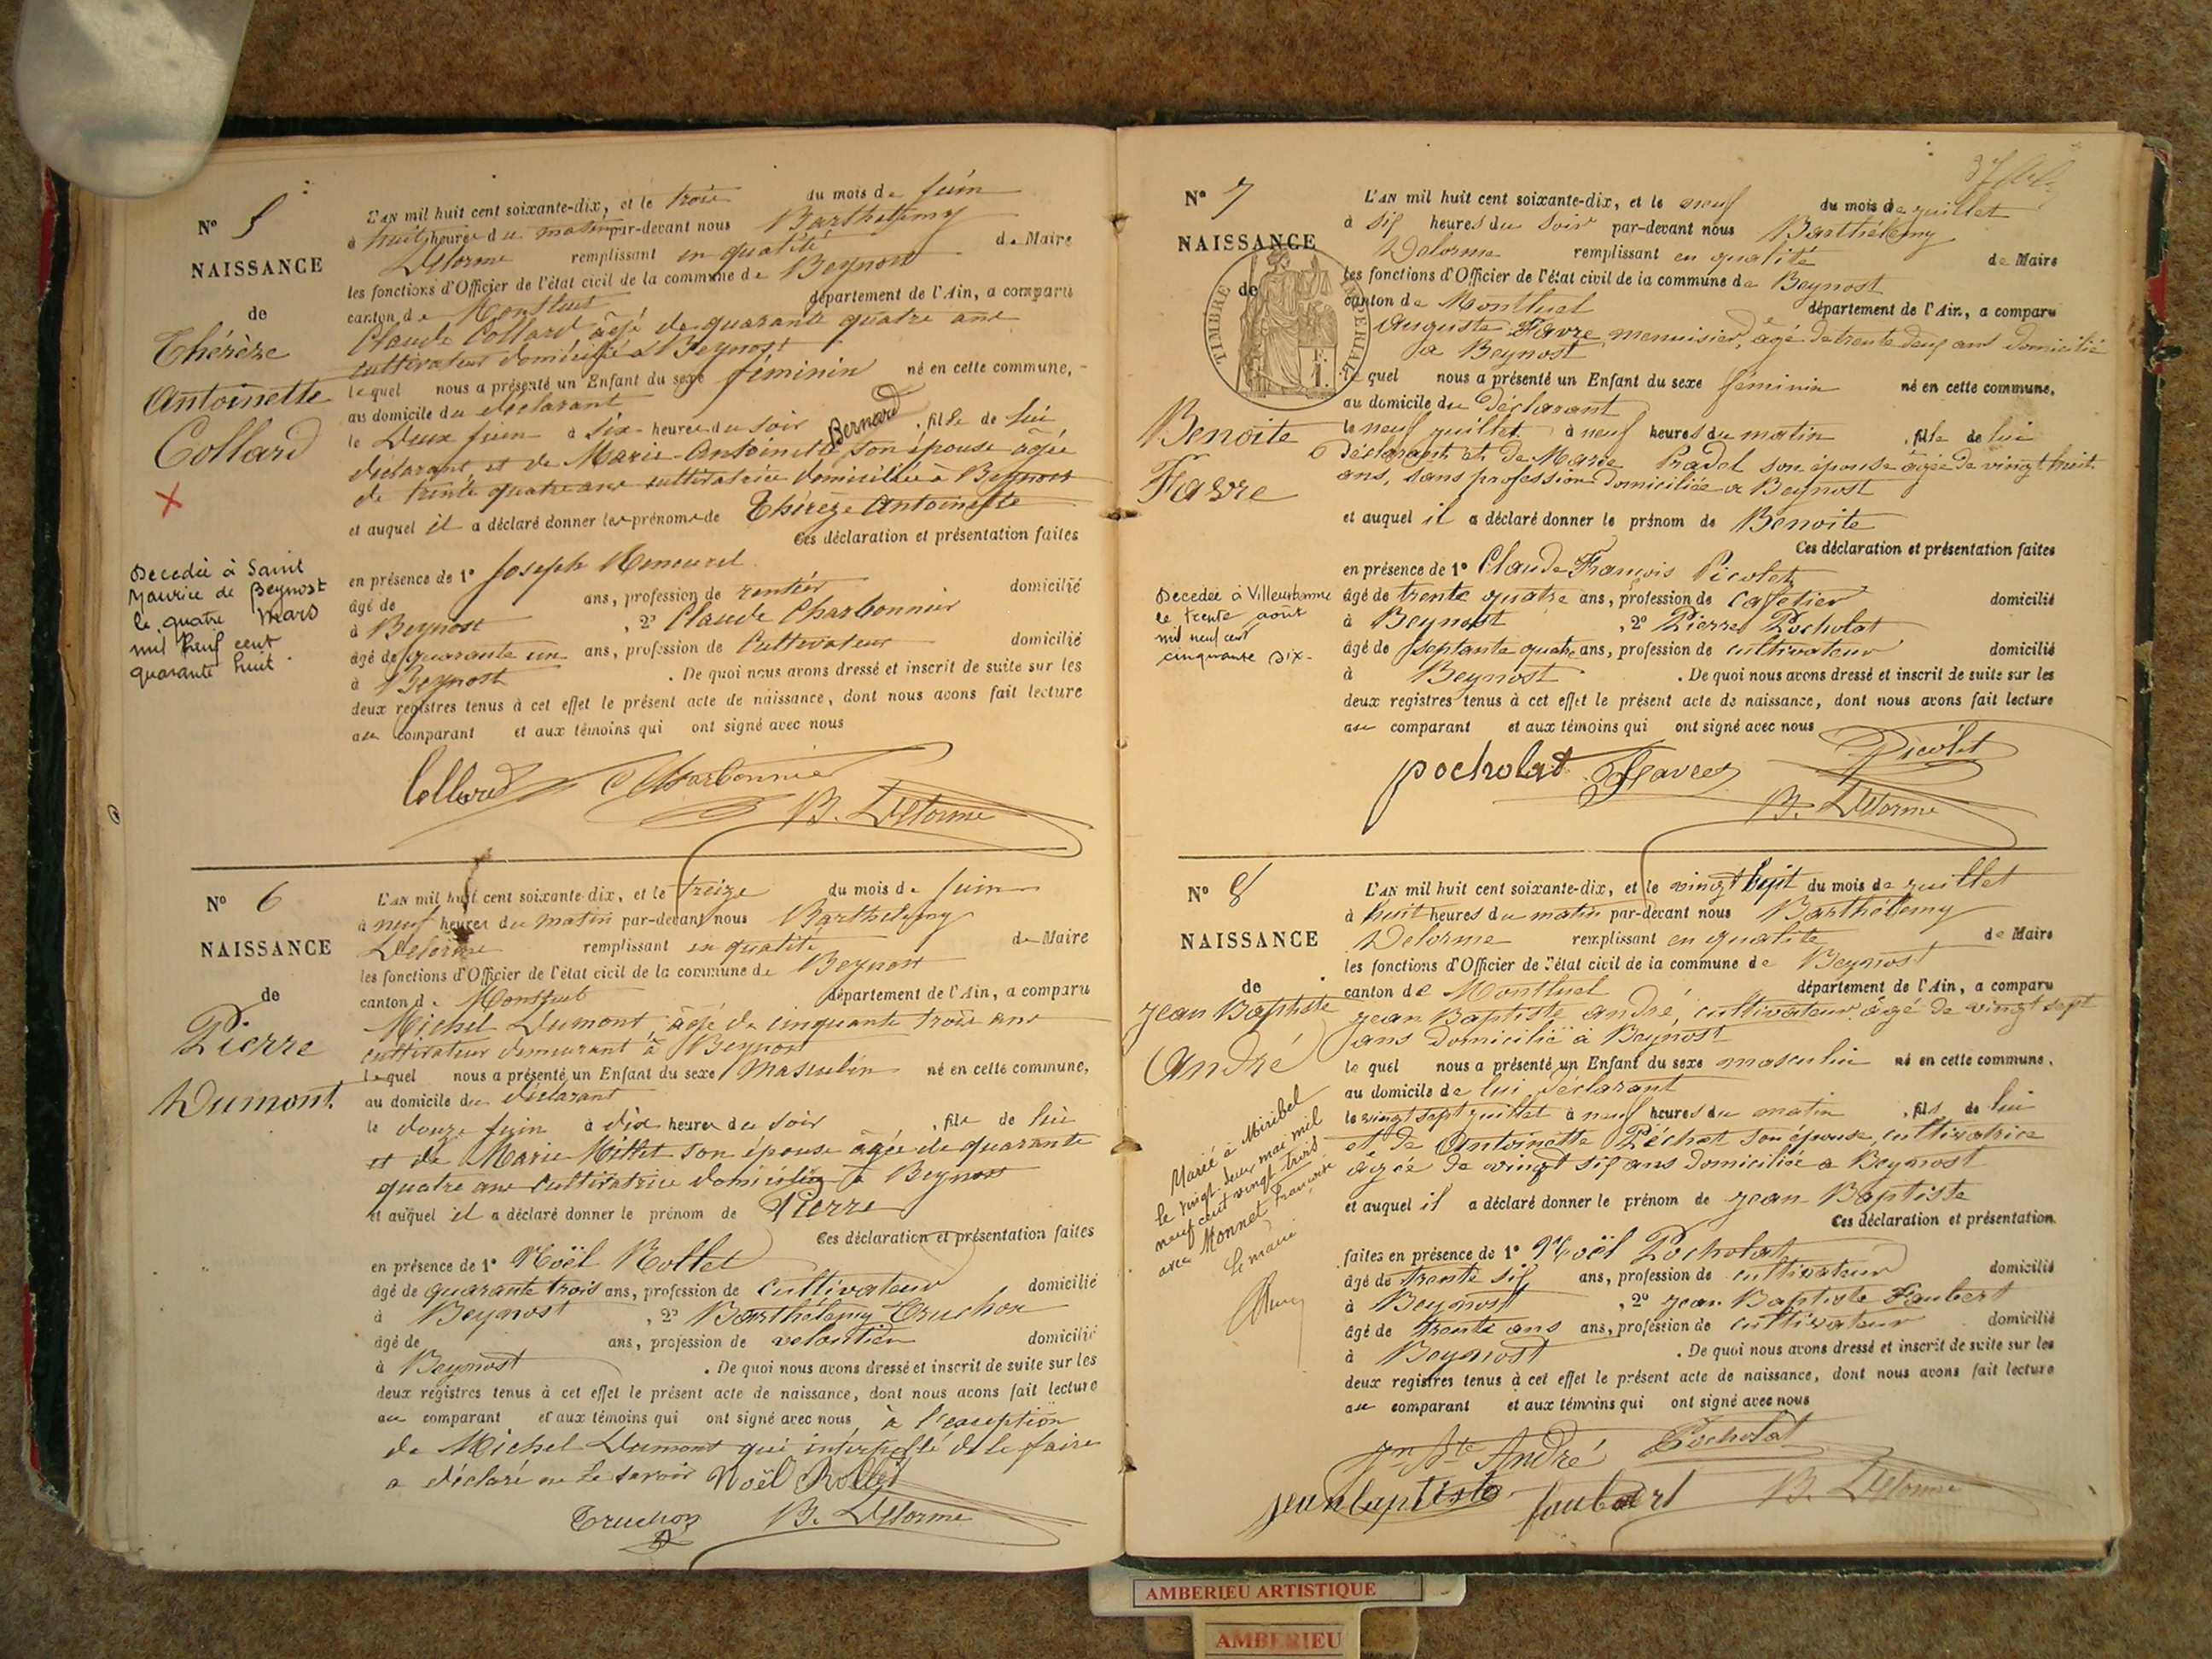 N° 5
NAISSANCE
de
Thérèze
Antoinette
Collard
Decedée à Saint
Maurice de Beynost
le quatre Mars
mil neuf cent
quarante huit.
L'AN mil huit cent soixante-dix, et le trois du mois de juin
à huit heures du matin par-devant nous Barthelemy
Delorme remplissant en qualité de Maire
les fonctions d'Officier de l'état civil de la commune de Beynost
canton de Montluel département de l'Ain, a comparu
Claude Collard âgé de quarante quatre ans
cultivateur domicilié à Beynost
lequel nous a présenté un Enfant du sexe féminin né en cette commune,
au domicile du déclarant
le deux juin à six heures du soir , fille de lui
Bernard
déclarant et de Marie-Antoinette son épouse âgée
de trente quatre ans cultivatrice domiciliée à Beynost
et auquel il a déclaré donner les prénoms de Thérèze Antoinette
Ces déclaration et présentation faites
en présence de 1° Joseph
âgé de ans, profession de rentier domicilié
à Beynost , 2° Claude Charbonnier
âgé de quarante un ans, profession de Cultivateur domicilié
à Beynost . De quoi nous avons dressé et inscrit de suite sur les
deux registres tenus à cet effet le présent acte de naissance, dont nous avons fait lecture
au comparant et aux témoins qui ont signé avec nous
Collard Charbonnier
B. Delorme
N° 6
NAISSANCE
de
Pierre
Dumont.
L'AN mil huit cent soixante-dix, et le treize du mois de juin
à neuf heures du matin par-devant nous Barthelemy
Delorme remplissant en qualité de Maire
les fonctions d'Officier de l'état civil de la commune de Beynost
canton de Montluel département de l'Ain, a comparu
Michel Dumont, âgé de cinquante trois ans
cultivateur demeurant à Beynost
lequel nous a présenté un Enfant du sexe Masculin né en cette commune,
au domicile du déclarant
le douze juin à dix heures du soir , fils de lui
et de Marie Millet son épouse âgée de quarante
quatre ans Cultivatrice domiciliée à Beynost
et auquel il a déclaré donner le prénom de Pierre
Ces déclaration et présentation faites
en présence de 1° Noël Rollet
âgé de quarante trois ans, profession de Cultivateur domicilié
à Beynost , 2° Barthélemy Truchon
âgé de ans, profession de domicilié
à Beynost . De quoi nous avons dressé et inscrit de suite sur les
deux registres tenus à cet effet le présent acte de naissance, dont nous avons fait lecture
au comparant et aux témoins qui ont signé avec nous, à l'exception
de Michel Dumont qui interpellé de le faire
a déclaré ne le savoir Noël Rollet
Truchon B. Delorme
N° 7
NAISSANCE
de
TIMBRE IMPERIAL
1 F.
Benoite
Favre
Decedée à Villeurbanne
le trente août
mil neuf cent
cinquante six.
L'AN mil huit cent soixante-dix, et le neuf du mois de juillet
à six heures du soir par-devant nous Barthélemy
Delorme remplissant en qualité de Maire
les fonctions d'Officier de l'état civil de la commune de Beynost
canton de Montluel département de l'Ain, a comparu
Auguste Favre, menuisier, âgé de trente deux ans domicilié
à Beynost
le quel nous a présenté un Enfant du sexe féminin né en cette commune,
au domicile du Déclarant
le neuf juillet à neuf heures du matin , fille de lui
Déclarant et de Marie Pradel son épouse âgée de vingt huit
ans, sans profession domiciliée à Beynost
et auquel il a déclaré donner le prénom de Benoite
Ces déclaration et présentation faites
en présence de 1° Claude François Picolet
âgé de trente quatre ans, profession de Cafetier domicilié
à Beynost , 2° Pierre Pocholat
âgé de septante quatre ans, profession de cultivateur domicilié
à Beynost . De quoi nous avons dressé et inscrit de suite sur les
deux registres tenus à cet effet le présent acte de naissance, dont nous avons fait lecture
au comparant et aux témoins qui ont signé avec nous
Picolet
pocholat Favre
B. Delorme
N° 8
NAISSANCE
de
Jean Baptiste
André
Marié à Miribel
le vingt deux mai mil
neuf cent vingt trois
avec Monnet Françoise
le maire
L'AN mil huit cent soixante-dix, et le vingt sept du mois de juillet
à huit heures du matin par-devant nous Barthélemy
Delorme remplissant en qualité de Maire
les fonctions d'Officier de l'état civil de la commune de Beynost
canton de Montluel département de l'Ain, a comparu
Jean Baptiste André, cultivateur âgé de vingt sept
ans domicilié à Beynost
le quel nous a présenté un Enfant du sexe masculin né en cette commune,
au domicile de lui déclarant
le vingt sept juillet à neuf heures du matin , fils de lui
et de Antoinette Péchet son épouse, cultivatrice
âgée de vingt six ans domiciliée à Beynost
et auquel il a déclaré donner le prénom de Jean Baptiste
Ces déclaration et présentation
faites en présence de 1° Noël Pocholat
âgé de trente six ans, profession de cultivateur domicilié
à Beynost , 2° Jean Baptiste Faubert
âgé de trente ans ans, profession de cultivateur domicilié
à Beynost . De quoi nous avons dressé et inscrit de suite sur les
deux registres tenus à cet effet le présent acte de naissance, dont nous avons fait lecture
au comparant et aux témoins qui ont signé avec nous
Jn Bte André Pocholat
jean baptiste faubert B. Delorme
AMBERIEU ARTISTIQUE
AMBERIEU